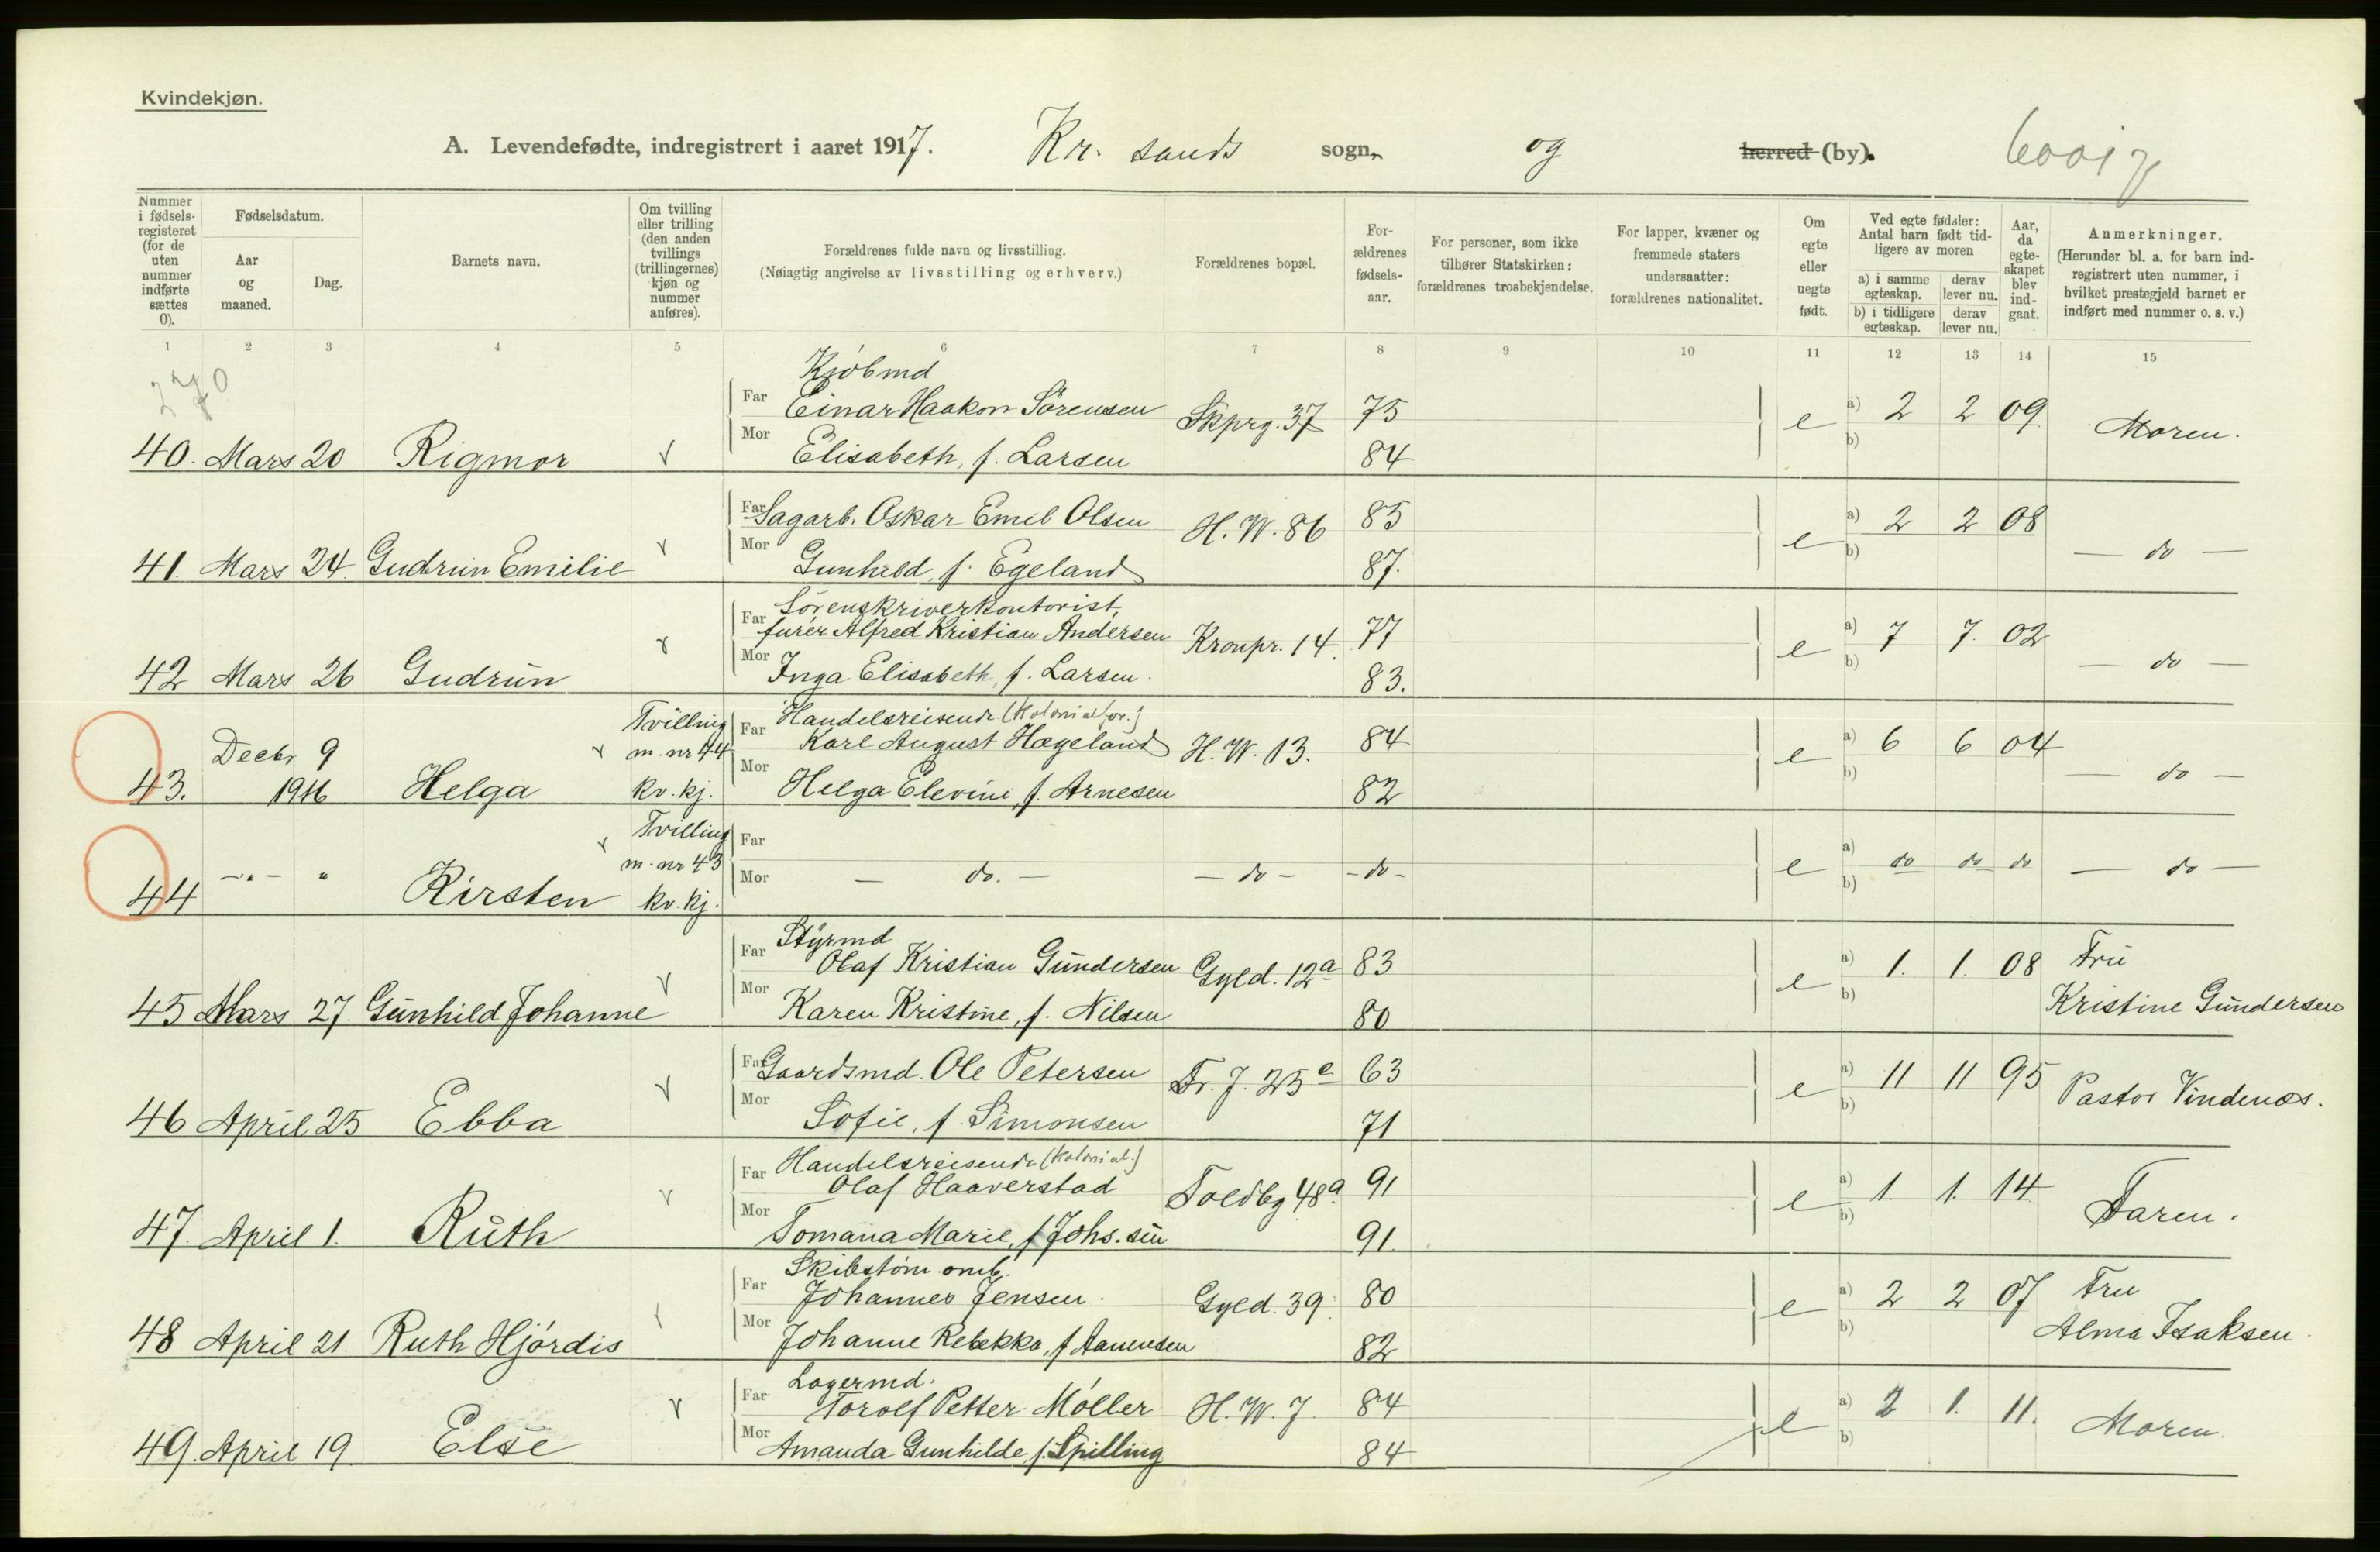 Kvindekjøn.
A. Levendefødte, indregistrert i aaret 1917. Kr. sands sogn, og herred (by).
Nummer i fødsels-registeret (for de uten nummer indførte sættes 0).
Fødselsdatum.
Aar og maaned.
Dag.
Barnets navn.
Om tvilling eller trilling (den anden tvillings (trillingernes) kjøn og nummer anføres).
Forældrenes fulde navn og livsstilling.
(Nøiagtig angivelse av livsstilling og erhverv.)
Forældrenes bopæl.
For-ældrenes fødsels-aar.
For personer, som ikke tilhører Statskirken: forældrenes trosbekjendelse.
For lapper, kvæner og fremmede staters undersaatter: forældrenes nationalitet.
Om egte eller uegte født.
Ved egte fødsler: Antal barn født tid-ligere av moren
a) i samme egteskap. derav lever nu.
b) i tidligere egteskap. derav lever nu.
Aar, da egte-skapet blev ind-gaat.
Anmerkninger.
(Herunder bl. a. for barn ind-registrert uten nummer, i hvilket prestegjeld barnet er indført med nummer o. s. v.)
1 2 3 4 5 6 7 8 9 10 11 12 13 14 15
270
Kjøbmd
Far Einar Haakon Sörensen Skprg. 37 75 e a) 2 2 09
40. Mars 20 Rigmor Mor Elisabeth, f. Larsen 84 b) Moren.
Far Sagarb. Oskar Emil Olsen H. W. 86 85 e a) 2 2 08
41. Mars 24. Gudrun Emilie Mor Gunhild, f. Egeland 87. b) — do —
Sörenskriverkontorist,
Far furér Alfred Kristian Andersen Kronpr. 14. 77 e a) 7 7. 02
42 Mars 26 Gudrun Mor Inga Elisabeth, f. Larsen. 83. b) — do —
Tvilling Handelsreisende (Kolonialfor.)
Decbr 9 m. nr 44 Far Karl August Hægeland H. W. 13. 84 e a) 6 6 04
43. 1916 Helga kv. kj. Mor Helga Elevine, f. Arnesen 82 b) — do —
Tvilling Far
m. nr 43 e a) do do do
44 —"— " Kirsten kv. kj. Mor — do. — — do — - do - b) — do —
Styrmd
Far Olaf Kristian Gundersen Gyld. 12a 83 e a) 1. 1. 08 Fru
45 Mars 27. Gunhild Johanne Mor Karen Kristine, f. Nilsen 80 b) Kristine Gundersen
Far Gaardsmd. Ole Petersen Tr. J. 25 e 63 e a) 11 11 95
46 April 25 Ebba Mor Sofie, f. Simonsen 71 b) Pastor Vindenæs.
Handelsreisende (Kolonial.)
Far Olaf Haaverstad Toldbg 48a. 91 e a) 1. 1. 14
47. April 1. Ruth Mor Tomana Marie, f Johs. sen 91. b) Faren.
Far Johannes Jensen. Gyld. 39. 80 e a) 2 2 07 Fru
48 April 21. Ruth Hjördis Mor Johanne Rebekka, f Aanensen 82 b) Alma Isaksen.
Lagermd.
Far Torolf Petter Möller H. W. 7. 84 e a) 2 1. 11.
49. April 19 Else Mor Amanda Gunhilde, f. Spilling 84 b) Moren.